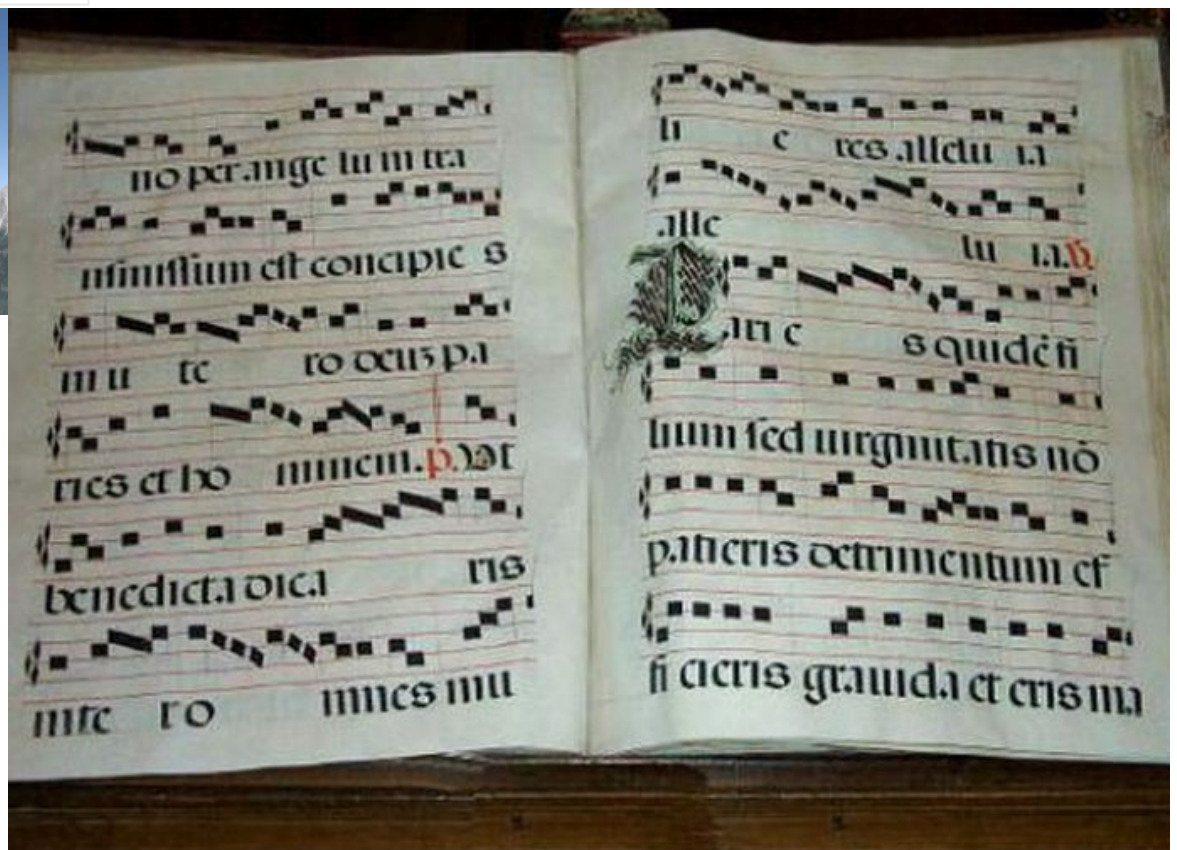 no per ange lum tra
nsmissum est concipie s
in u te ro deus pa
ries et ho minem. p. Vt
benedicta dica ris
inte ro mnes mu
li e res allelu ia
alle lu ia. v.
Pari e s quidē fi
lium sed uirginitatis nō
patieris detrimentum ef
fi cieris grauida et eris ma